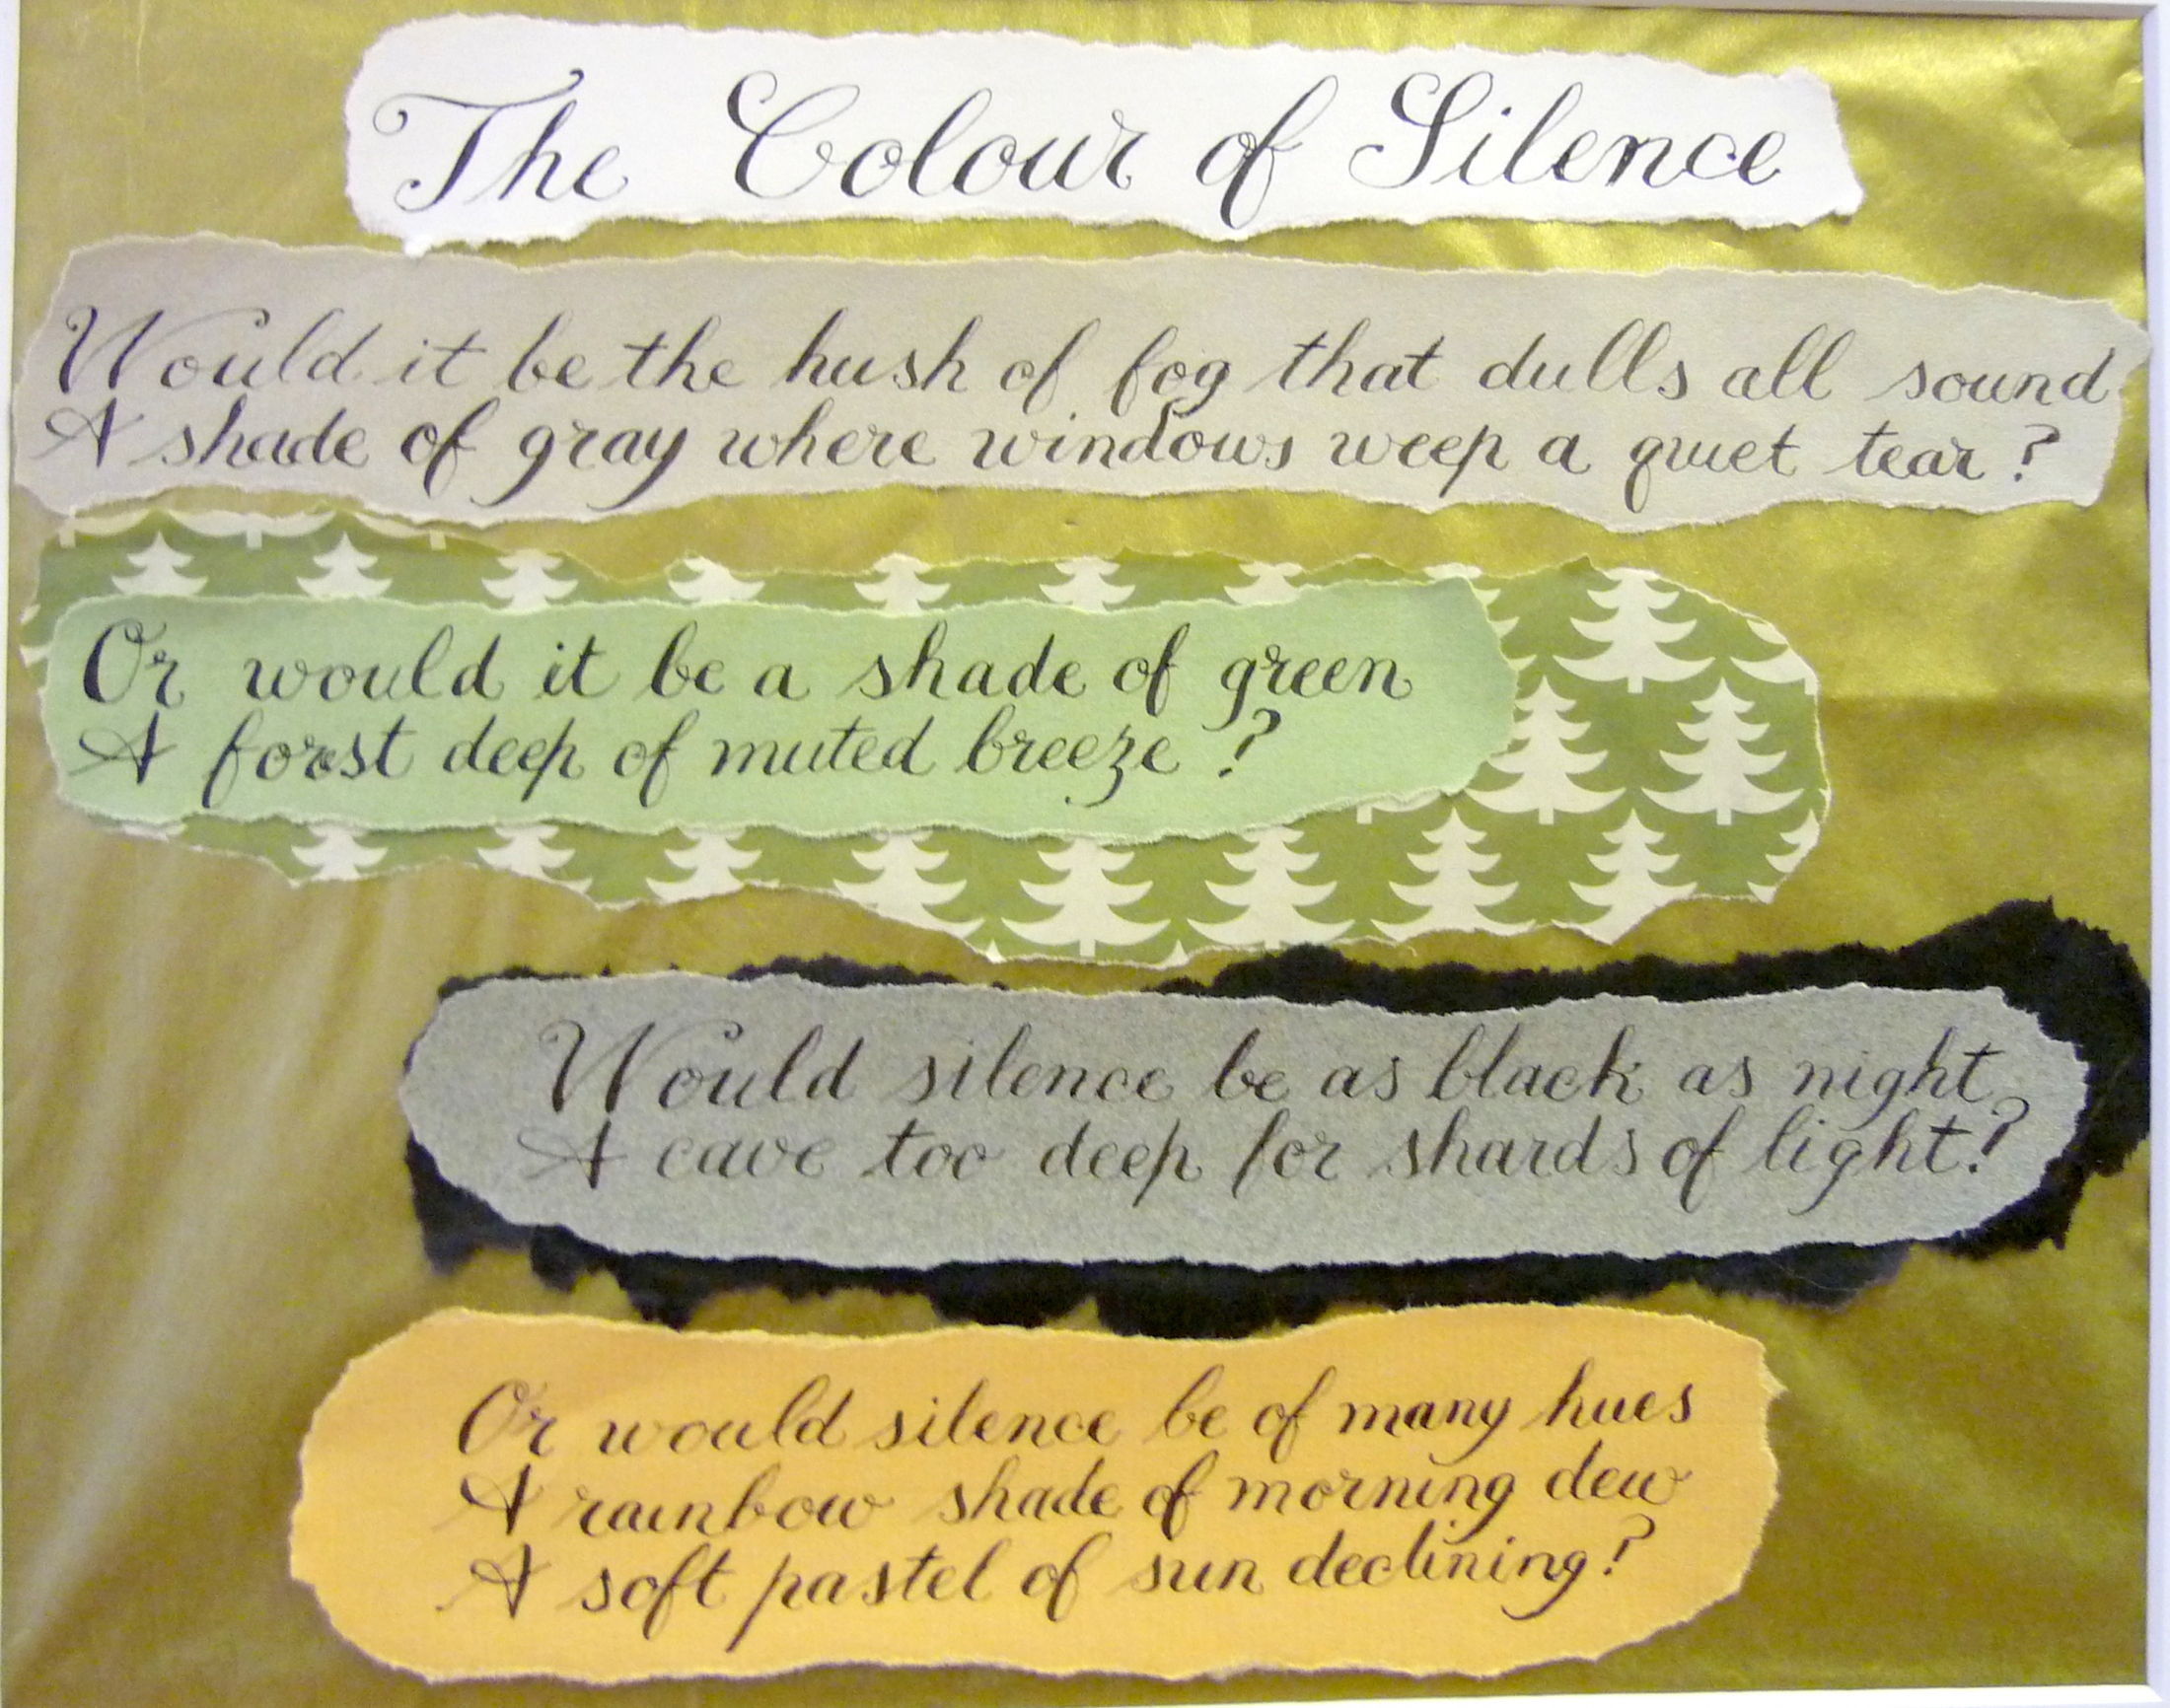 The Colour of Silence
Would it be the hush of fog that dulls all sound
A shade of gray where windows weep a quiet tear?
Or would it be a shade of green
A forest deep of muted breeze?
Would silence be as black as night
A cave too deep for shards of light?
Or would silence be of many hues
A rainbow shade of morning dew
A soft pastel of sun declining?